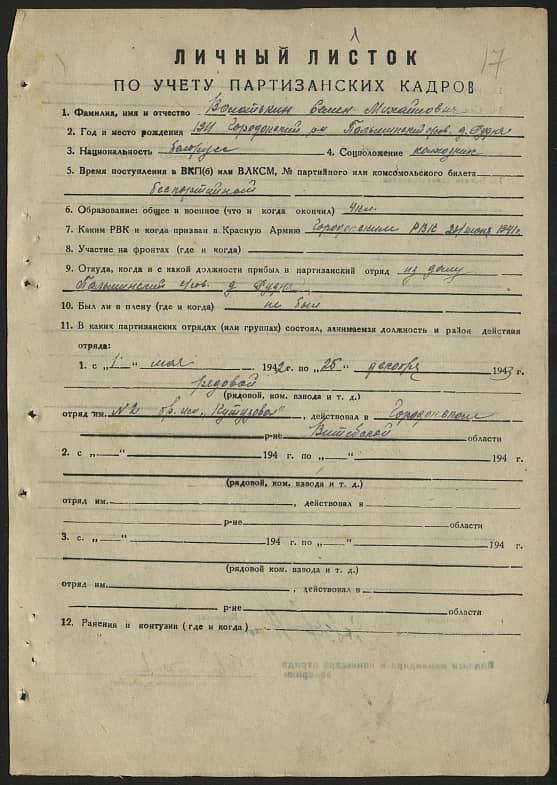 17
ЛИЧНЫЙ ЛИСТОК
ПО УЧЕТУ ПАРТИЗАНСКИХ КАДРОВ
1. Фамилия, имя и отчество Михайлович
2. Год и место рождения 1911 Городокский р-н Пальминский с/сов. д. Рудня
3. Национальность белорусс 4. Соцположение колхозник
5. Время поступления в ВКП(б) или ВЛКСМ, № партийного или комсомольского билета
беспартийный
6. Образование: общее и военное (что и когда окончил) 4 кл.
7. Каким РВК и когда призван в Красную Армию Городокским РВК 24 июня 1941 г.
8. Участие на фронтах (где и когда)
9. Откуда, когда и с какой должности прибыл в партизанский отряд из дому
Пальминский с/сов. д. Рудня
10. Был ли в плену (где и когда) не был
11. В каких партизанских отрядах (или группах) состоял, занимаемая должность и район действия
отряда:
1. с „1“ мая 1942 г. по „25“ декабря 1943 г.
рядовой
(рядовой, ком. взвода и т. д.)
отряд им. №2 бр. им. „Кутузова“, действовал в Городокском
р-не Витебской области
2. с „ “ 194 г. по „ “ 194 г.
(рядовой, ком. взвода и т. д.)
отряд им. , действовал в
р-не области
3. с „ “ 194 г. по „ “ 194 г.
(рядовой, ком. взвода и т. д.)
отряд им. , действовал в
р-не области
12. Ранения и контузии (где и когда)